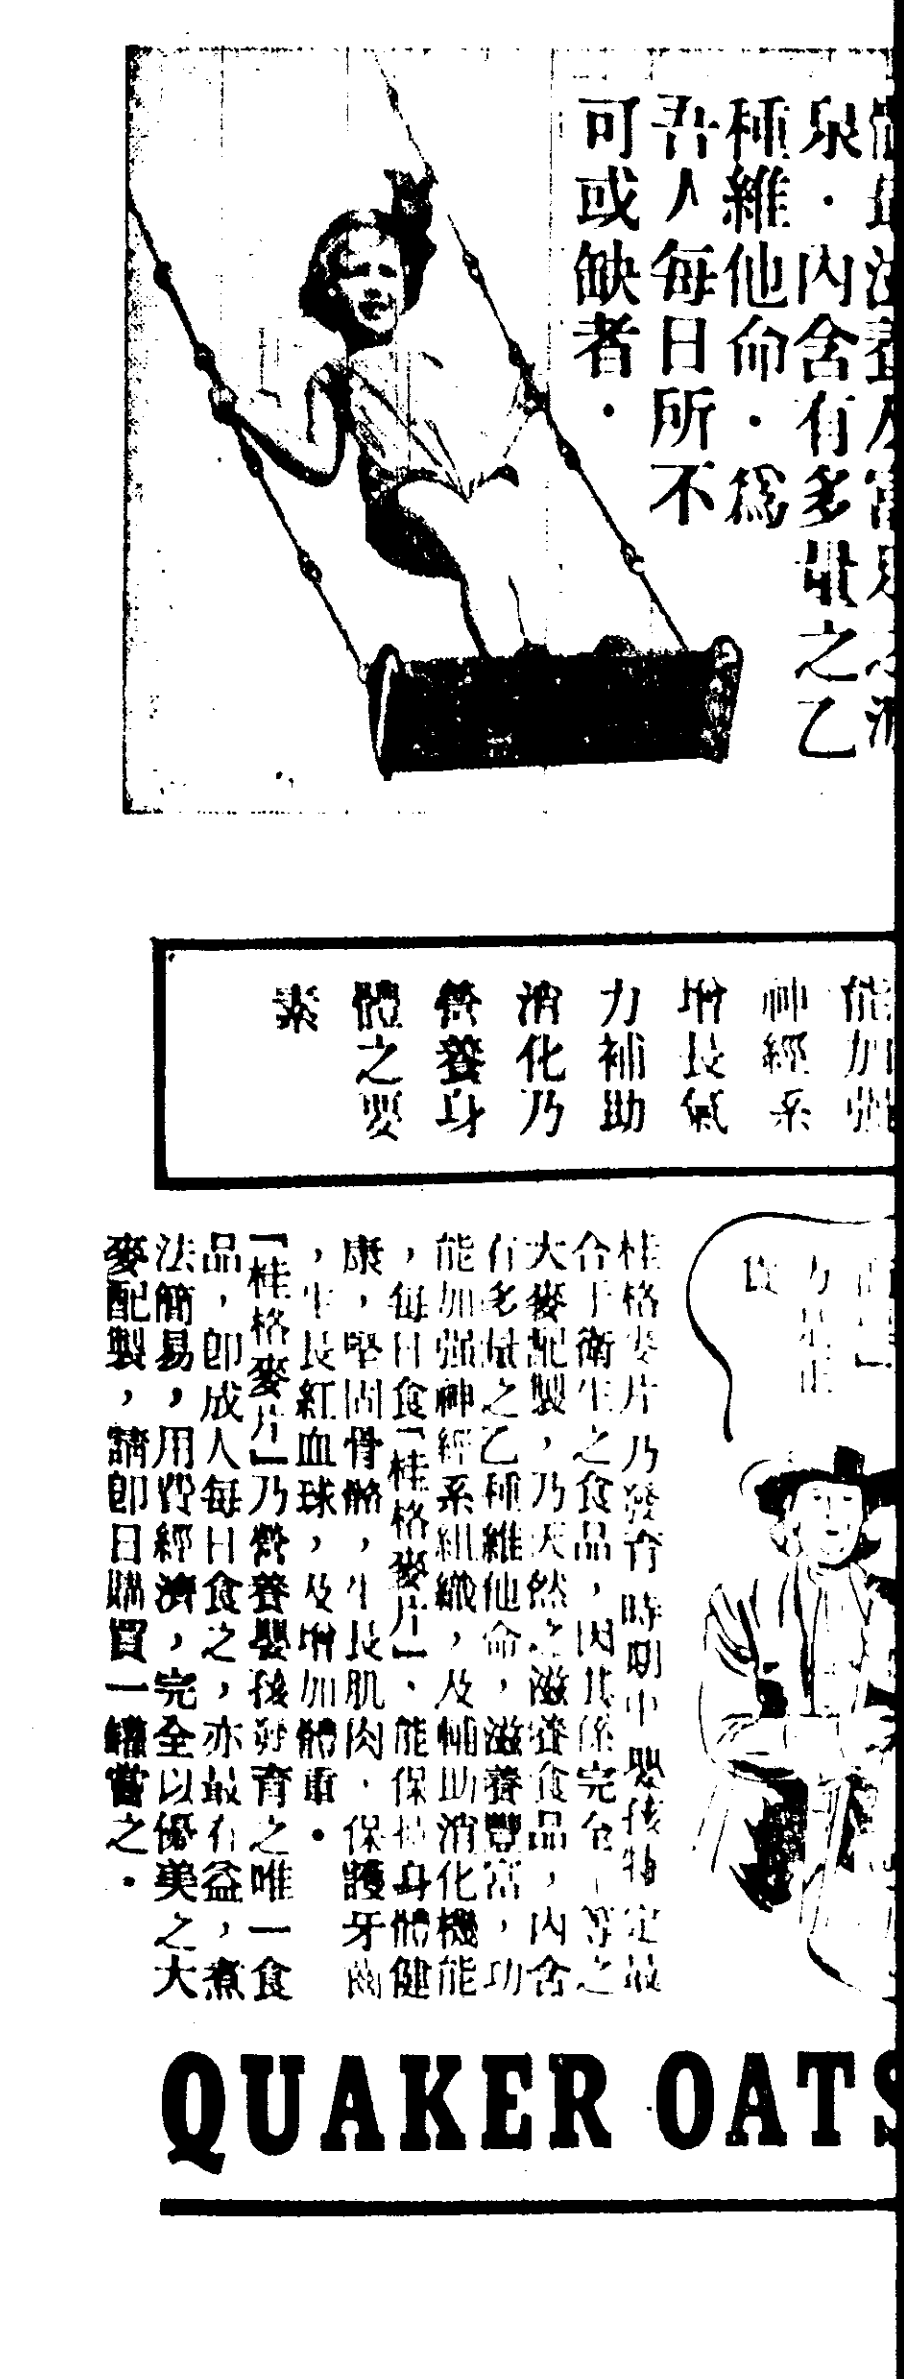 泉．內含有多量之乙
種維他命．為
吾人每日所不
可或缺者．
能加強
神經系
增長氣
力補助
消化乃
營養身
體之要
素
桂格麥片乃發育時期中嬰孩特定最
合于衛生之食品，因其係完全上等之
大麥配製，乃天然之滋養食品，內含
有多量之乙種維他命，滋養豐富，功
能加强神經系組織，及輔助消化機能
，每日食「桂格麥片」、能保持身體健
康，堅固骨骼，生長肌肉，保護牙齒
，生長紅血球，及增加體重．
「桂格麥片」乃營養嬰孩發育之唯一食
品，卽成人每日食之，亦最有益，煮
法簡易，用費經濟，完全以優美之大
麥配製，請卽日購買一罐嘗之．
QUAKER OATS